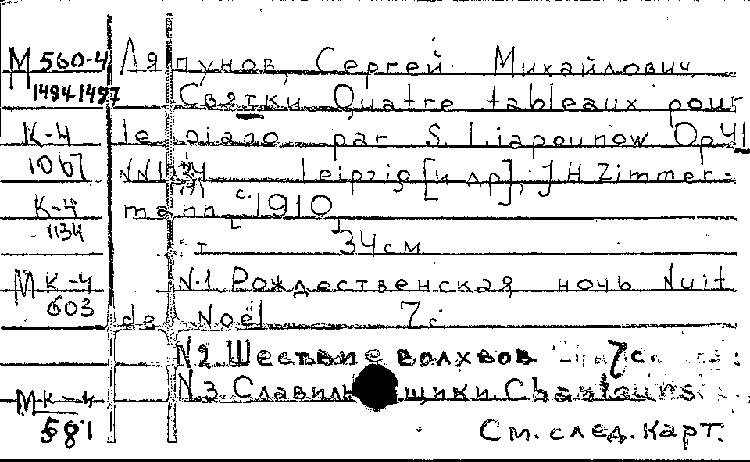 М 560-4 Ляпунов, Сергей Михайлович
1494 1497 Святки Quatre tableaux pour
К-4 le piano par S. Liapounow Op 41
1067 NN1-4 Leipzig [и др], J H Zimmer-
К-4 mann, с. 1910
1134 т 34 см
МК-4 N.1. Рождественская ночь Nuit
603 de Noël 7 с
N2. Шествие волхвов 7 с
МК-4 N.3. Славильщики. Chanteurs
581 См. след. карт.